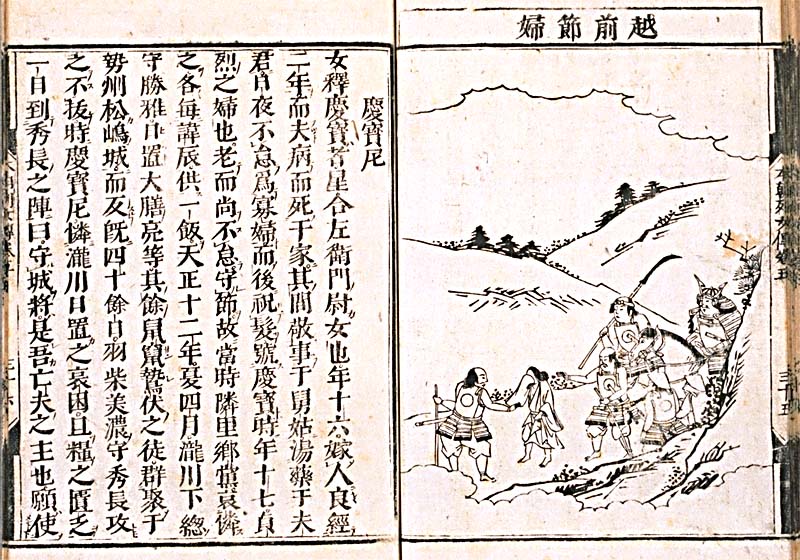 越前節婦
本朝列女傳卷五
三十五
慶寶尼
女釋慶寶者星合左衞門尉女也年十六嫁人良經
二年而夫病而死于家其間敬事于舅姑湯藥于夫
君日夜不怠爲寡婦而後祝髮號慶寶時年十七貞
烈之婦也老而尚不怠守節故當時隣里鄉黨哀憐
之各每諱辰供一飯天正十二年夏四月瀧川下總
守勝雅日置大膳亮等其餘鼠竄蟄伏之徒群聚于
勢州松嶋城而及旣四十餘日羽柴美濃守秀長攻
之不拔時慶寶尼憐瀧川日置之哀困且糧之匱乏
一日到秀長之陣曰守城將是吾亡夫之主也願使